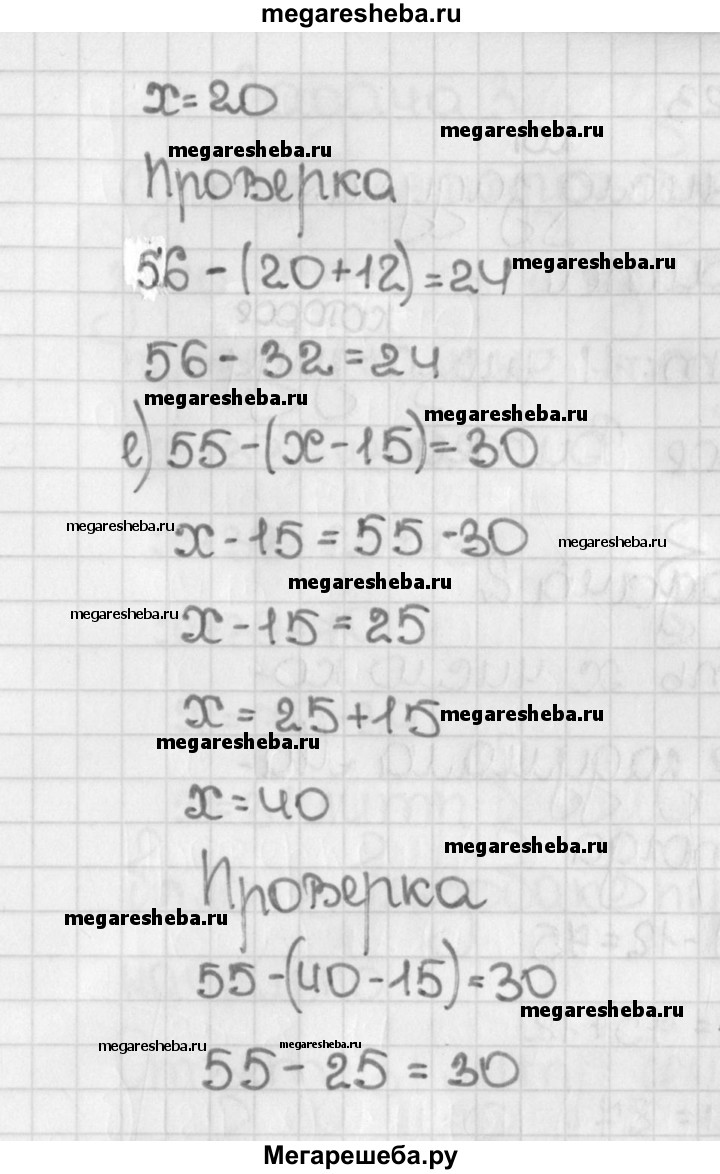 megaresheba.ru
x=20
megaresheba.ru
megaresheba.ru
Проверка
56-(20+12)=24
megaresheba.ru
56-32=24
megaresheba.ru
megaresheba.ru
е) 55-(x-15)=30
megaresheba.ru
x-15=55-30
megaresheba.ru
megaresheba.ru
megaresheba.ru
x-15=25
x=25+15
megaresheba.ru
megaresheba.ru
x=40
megaresheba.ru
Проверка
megaresheba.ru
55-(40-15)=30
megaresheba.ru
megaresheba.ru
megaresheba.ru
55-25=30
Мегарешеба.ру